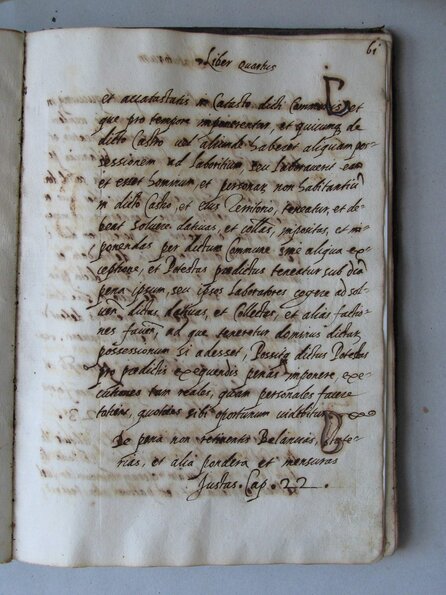 61
Liber Quartus
et accatastatis in Catasto dicti Communis, et
que pro tempore imponerentur, et quicunq de
dicto Castro vel aliunde haberet aliquam pos-
sessionem vel laboritium, seu laboraverit eam
et esset hominum, et personar, non habitantiū
in dicto Castro, et eius Territorio, teneatur, et de-
beat soluere dativas, et collas, impositas, et im-
ponendas per dictum Commune sine aliqua ex-
ceptione, et Potestas praedictus teneatur sub dict
pena ipsum seu ipsos laboratores cogere ad sol-
ven dictas dativas, et Collectas, et alias factio-
nes faciend, ad que teneretur dominus dictar
possessionum si adesset, Possitq dictus Potestas
pro praedictis exequendis penas imponere, exe-
cutiones tam reales, quam personales facere
toties, quoties sibi oportunum videbitur
De pena non retinentis Belancias, State-
rias, et alia pondera et mensuras
Justas. Cap. 22.